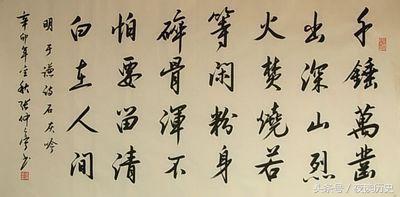 千錘萬凿
出深山烈
火焚燒若
等闲粉身
碎骨渾不
怕要留清
白在人间
明于谦诗石灰吟
辛卯年金秋张仲亭书
头条号
历史